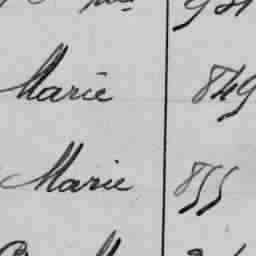 Marie 849
Marie 855